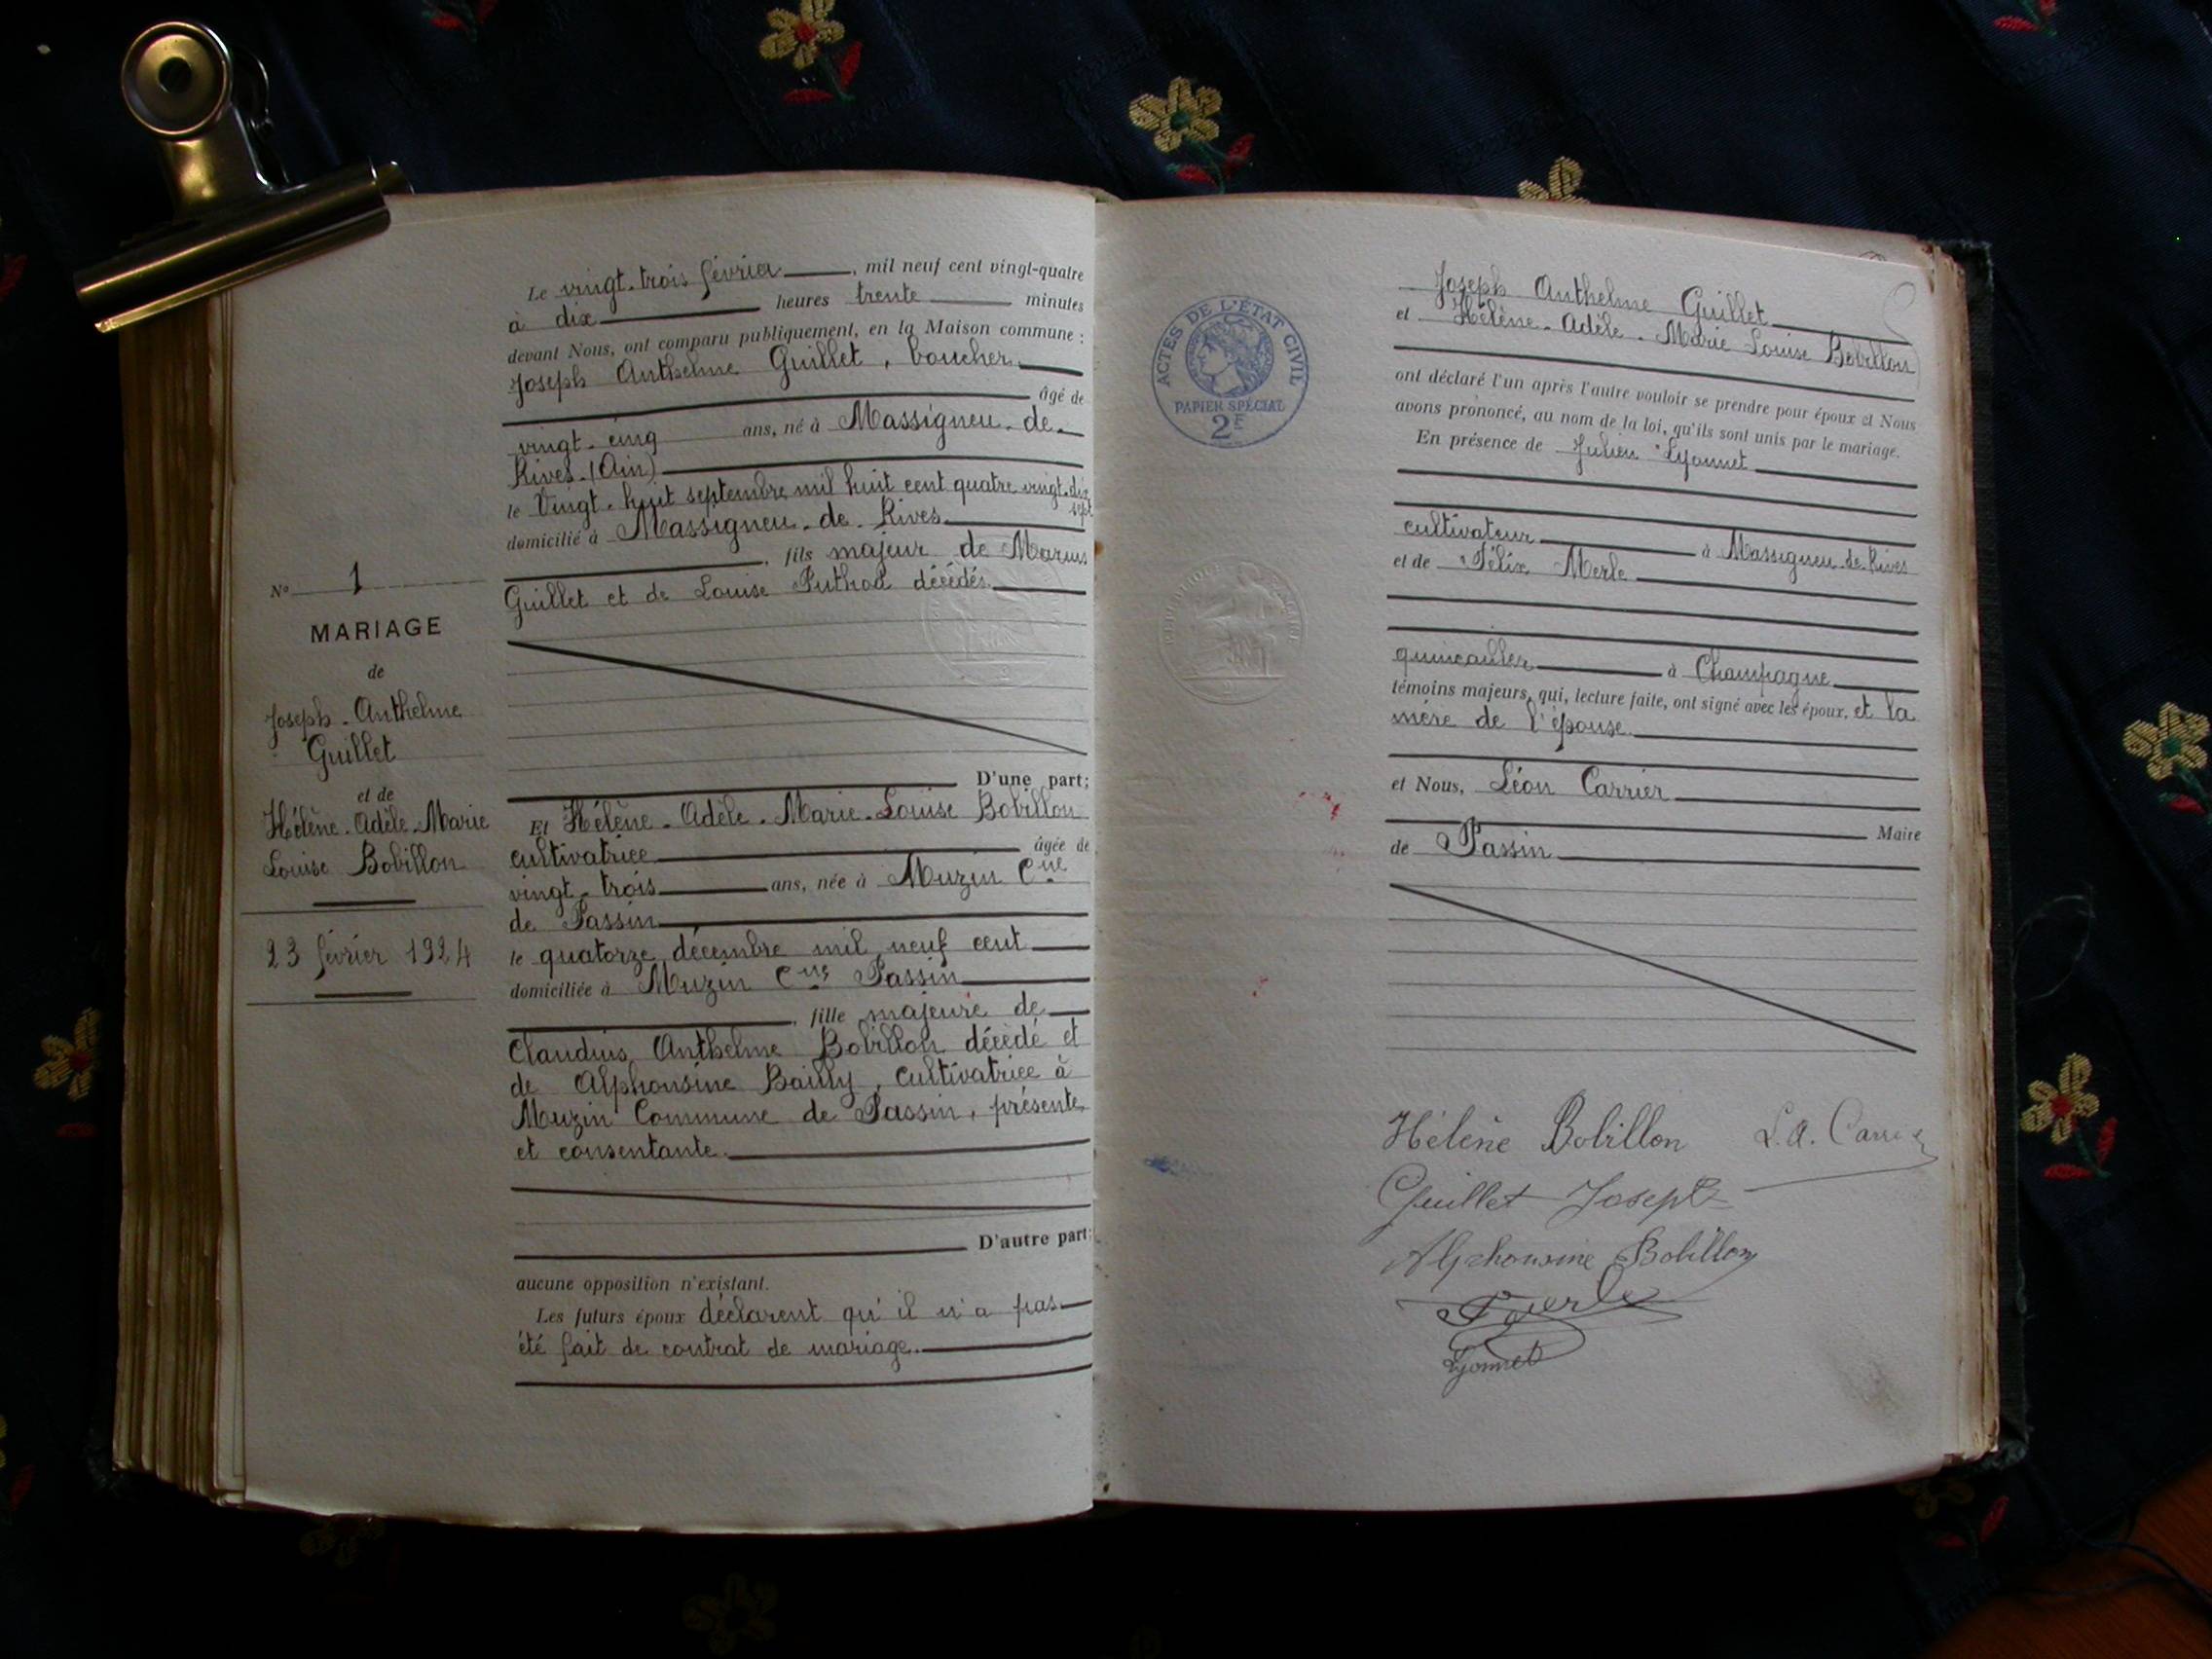 Le vingt-trois février, mil neuf cent vingt-quatre
à dix heures trente minutes
devant Nous, ont comparu publiquement, en la Maison commune :
Joseph Anthelme Guillet, boucher
âgé de
vingt-cinq ans, né à Massigneu-de-
Rives-(Ain)
le Vingt-huit septembre mil huit cent quatre vingt-dix
sept
domicilié à Massigneu-de-Rives
, fils majeur de Marius
Guillet et de Louise décédés
N° 1
MARIAGE
de
Joseph-Anthelme
Guillet
et de
Hélène-Adèle-Marie
Louise Bobillon
23 février 1924
D'une part;
Et Hélène-Adèle-Marie-Louise Bobillon
cultivatrice âgée de
vingt-trois ans, née à Muzin Cne
de Passin
le quatorze décembre mil neuf cent
domiciliée à Muzin Cne Passin
, fille majeure de
Claudius Anthelme Bobillon décédé et
de Alphonsine Bailly, cultivatrice à
Muzin Commune de Passin, présente
et consentante.
D'autre part;
aucune opposition n'existant.
Les futurs époux déclarent qu'il n'a pas
été fait de contrat de mariage.
ACTES DE L'ÉTAT CIVIL
PAPIER SPÉCIAL
2F
Joseph Anthelme Guillet
et Hélène-Adèle-Marie Louise Bobillon
ont déclaré l'un après l'autre vouloir se prendre pour époux et Nous
avons prononcé, au nom de la loi, qu'ils sont unis par le mariage.
En présence de Julien Lyonnet
cultivateur à Massigneu-de-Rives
et de Félix Merle
à Champagne
témoins majeurs, qui, lecture faite, ont signé avec les époux, et la
mère de l'épouse.
et Nous, Léon Carrier
Maire
de Passin
Hélène Bobillon L.A. Carrier
Guillet Joseph
Alphonsine Bobillon
Lyonnet